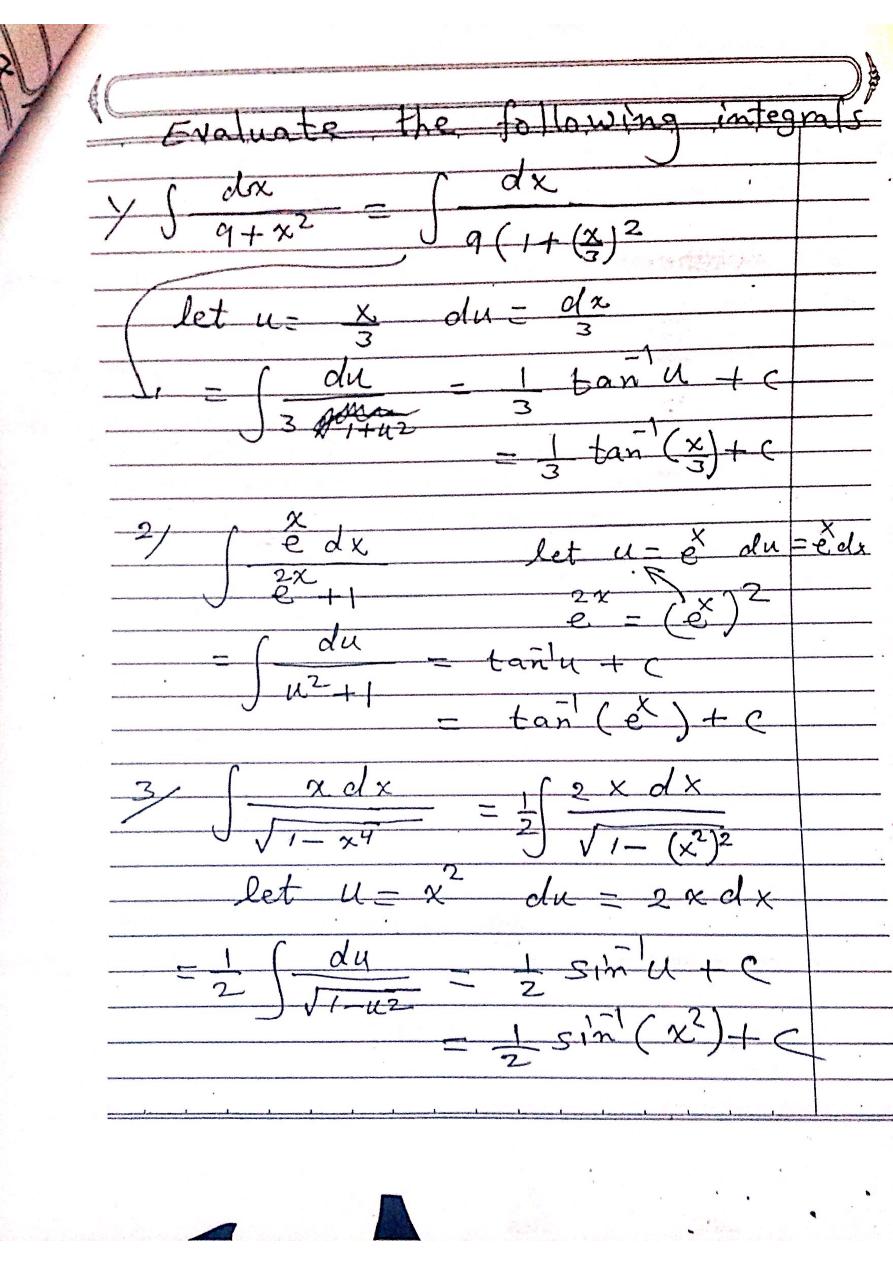 Evaluate the following integrals
1/ ∫ dx / (9 + x²) = ∫ dx / 9(1 + (x/3)²
let u = x/3 du = dx/3
= ∫ du / 3 1+u² = 1/3 tan⁻¹ u + c
= 1/3 tan⁻¹(x/3) + c
2/ ∫ eˣ dx / (e²ˣ + 1) let u = eˣ du = eˣ dx
e²ˣ = (eˣ)²
= ∫ du / (u² + 1) = tan⁻¹u + c
= tan⁻¹(eˣ) + c
3/ ∫ x dx / √(1 - x⁴) = 1/2 ∫ 2x dx / √(1 - (x²)²)
let u = x² du = 2x dx
= 1/2 ∫ du / √(1-u²) = 1/2 sin⁻¹u + c
= 1/2 sin⁻¹(x²) + c